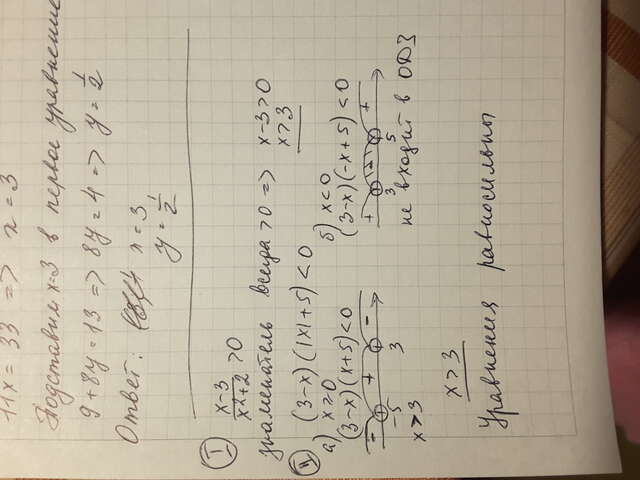 11x = 33 => x = 3
Подставим x=3 в первое уравнение
9+8y=13 => 8y=4 => y=1/2
Ответ: x=3
y=1/2
I
x-3/x²+2 >0
знаменатель всегда >0 => x-3>0
x>3
II (3-x)(|x|+5)<0
а) x≥0
(3-x)(x+5)<0
- + -
-5 3
x>3
б) x<0
(3-x)(-x+5)<0
+ - +
3 5
не входит в ОДЗ
x>3
Уравнения равносильны